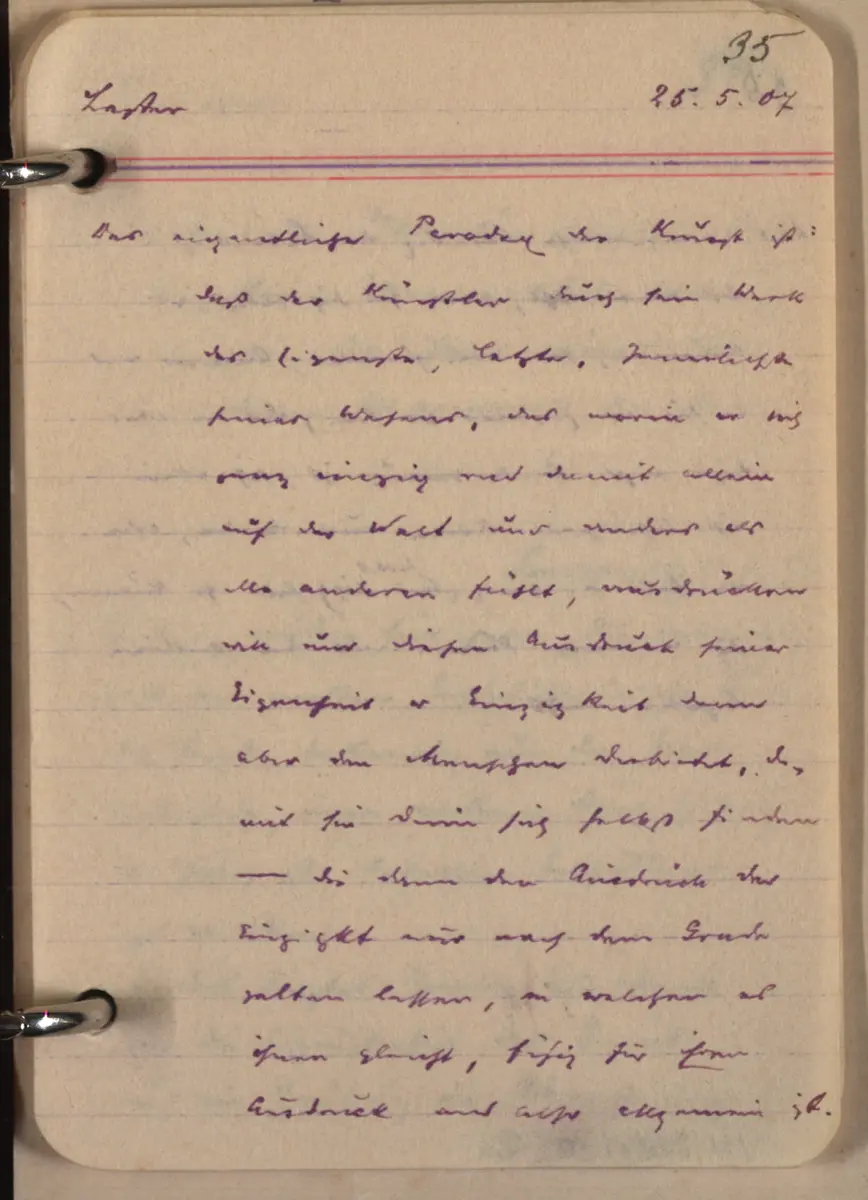 35
25. 5. 07
Das eigentliche Paradox der Kunst ist:
daß der Künstler durch sein Werk
das Eigenste, Letzte, Innerlichste
seines Wesens, das worin er sich
ganz einzig und damit allein
auf der Welt und anders als
alle anderen fühlt, ausdrücken
will und diesen Ausdruck seiner
Eigenheit er Einzigkeit dann
aber den Menschen darbietet, da-
mit sie darin sich selbst finden
— die dann den Ausdruck der
Einzigkt nur nach dem Grade
gelten lassen, in welchem es
ihnen gleicht, fähig für ihren
Ausdruck und also allgemein ist.